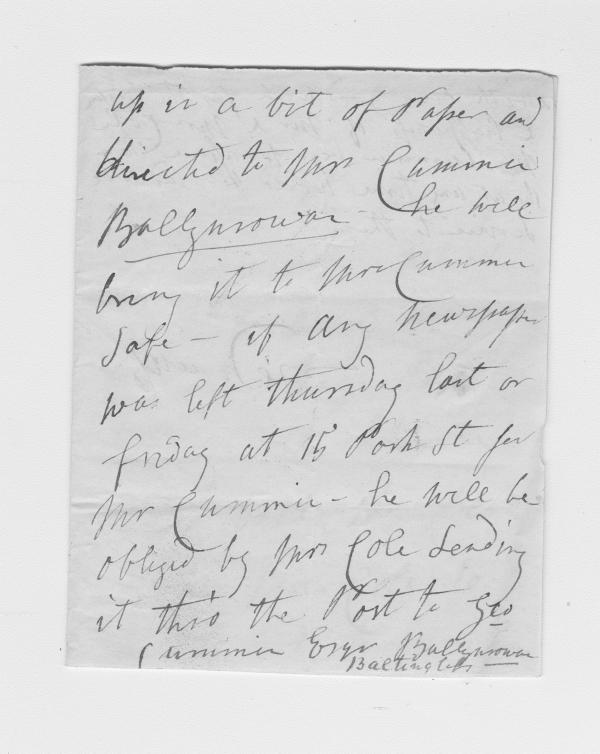 up in a bit of Paper and
directed to Mrs Cummin
Ballynrowan - he will
bring it to Mrs Cummin
safe - if any newspaper
was left thursday last or
friday at 15 Park St for
Mr Cummin - he will be
obliged by Mrs Cole sending
it thro the Post to Geo
Cummin Esqr Ballynrowan
Baltinglass